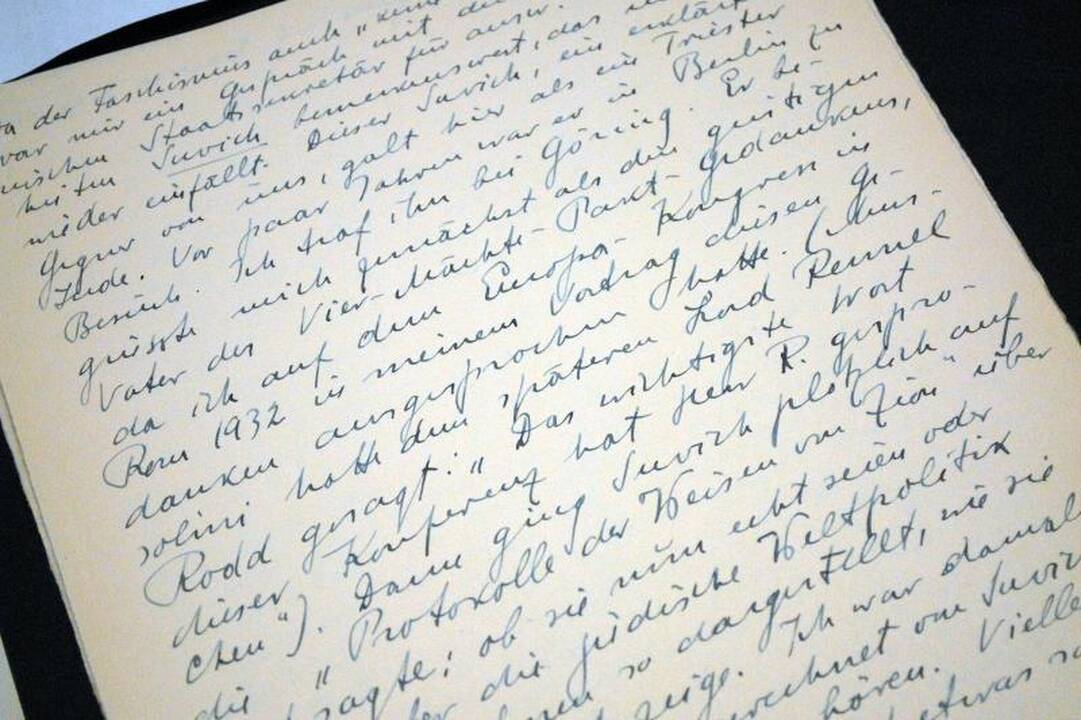 da der Faschismus auch „keine
war mir ein Gespräch mit de
nischen Staatssekretär für ausw.
heiten Suvich bemerkenswert, das
wieder einfällt. Dieser Suvich, ein erklärt
Gegner von uns, galt hier als ein Triester
Jude. Vor paar Jahren war er in Berlin zu
Besuch. Ich traf ihn bei Göring. Er be-
grüsste mich zunächst als den geistigen
Vater des Vier-Mächte-Pakt-Gedankens,
da ich auf dem Europa-Kongress in
Rom 1932 in meinem Vortrag diesen Ge-
danken ausgesprochen hatte. (Mus-
solini hatte dem späteren Lord Rennel
Rodd gesagt: „Das wichtigste Wort
dieser Konferenz hat Herr R. gespro-
chen“). Dann ging Suvich plötzlich auf
die „Protokolle der Weisen von Zion“ über
sagte: ob sie nun echt seien oder
die jüdische Weltpolitik
so dargestellt, wie sie
zeige. Ich war damals
von Suvich
hören. Vielle
etwas